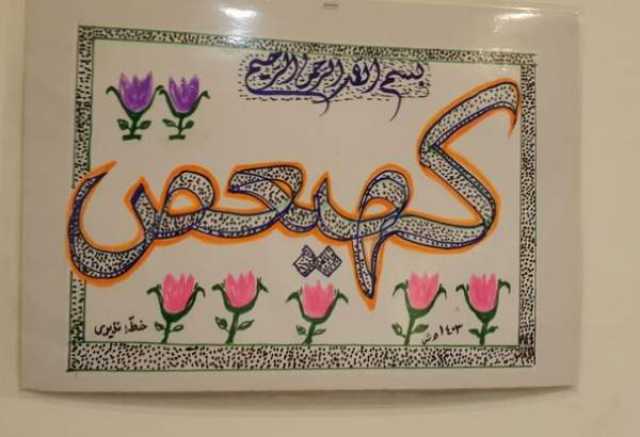 بسم الله الرحمن الرحیم
کهیعص
خط:
۱۴۰۳ ه ش